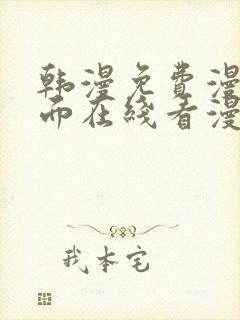 韩漫免费漫
而在线看漫
我本宅